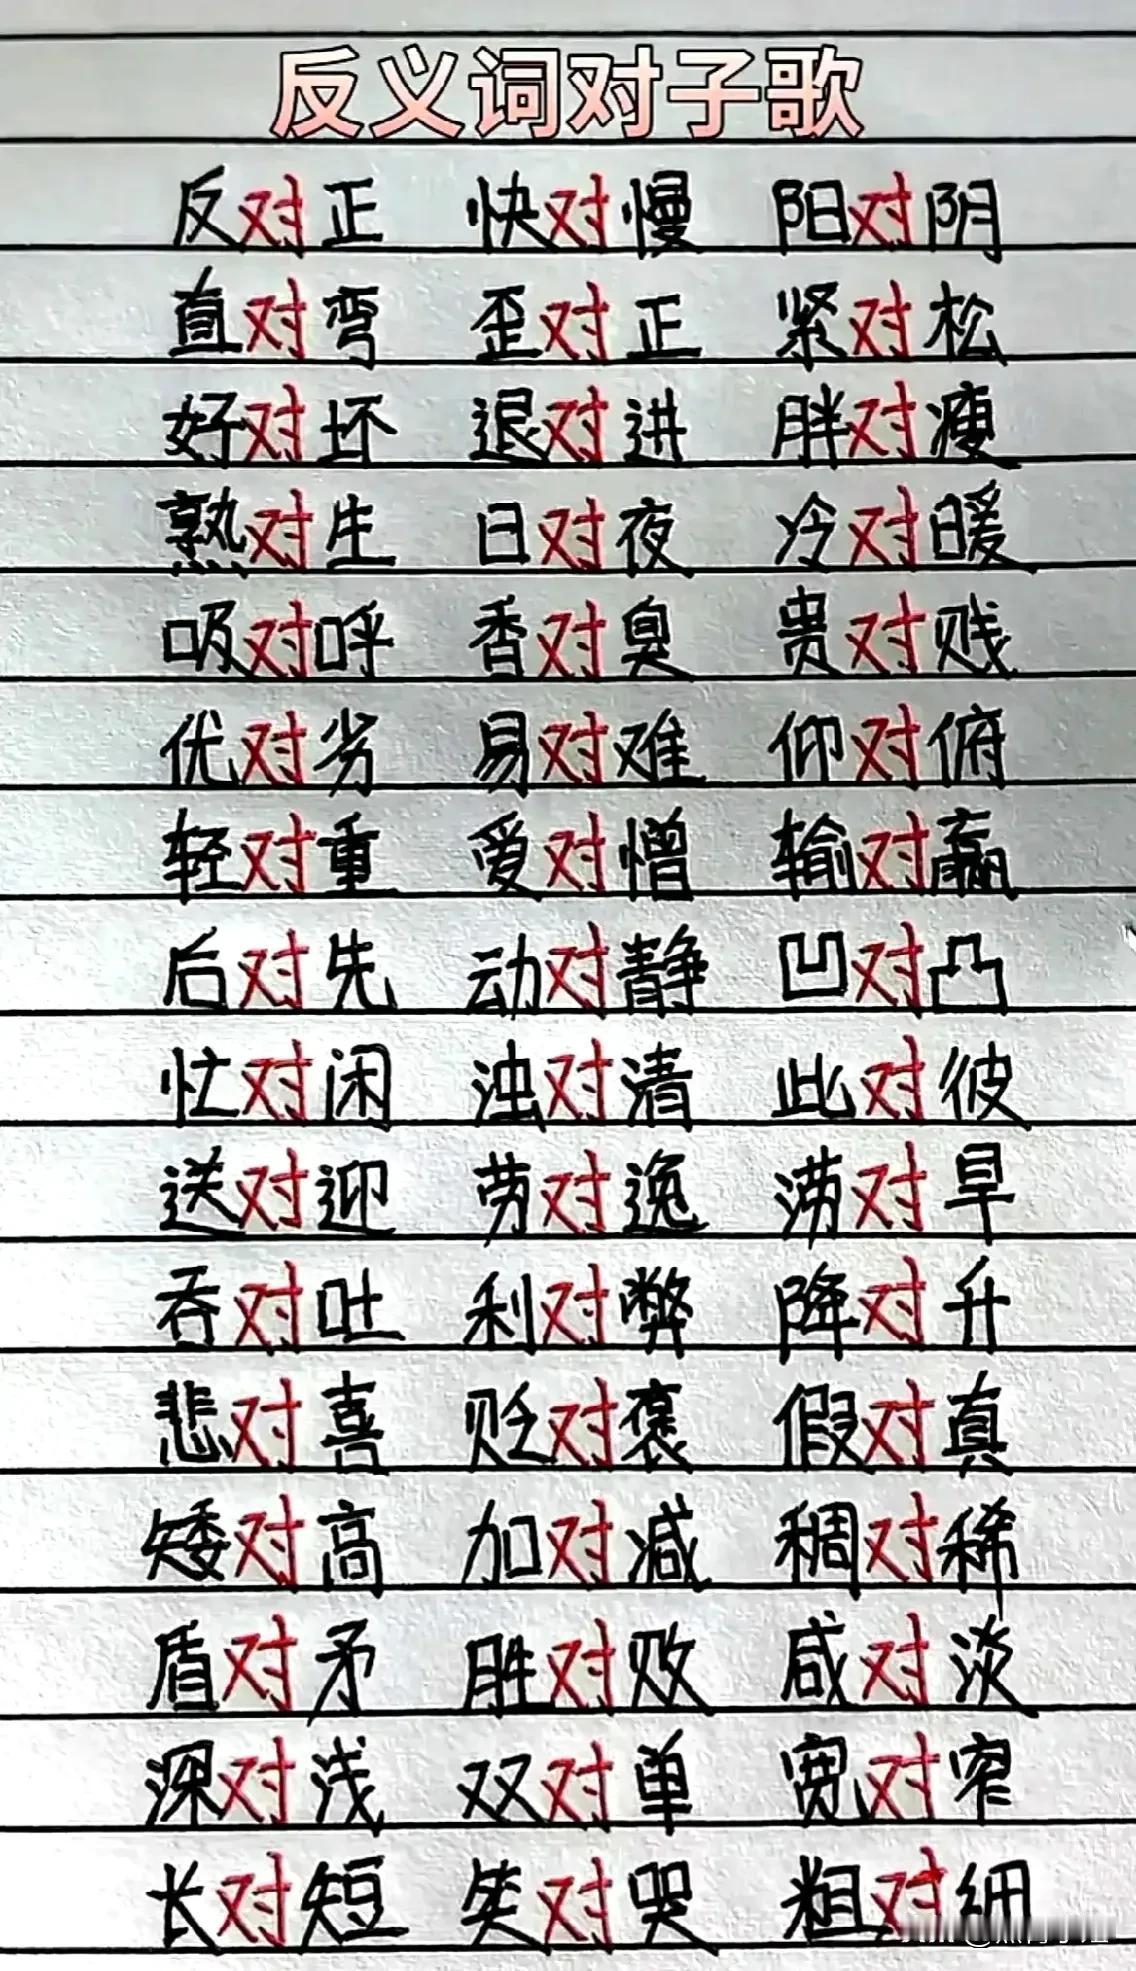 反义词对子歌
反对正 快对慢 阳对阴
直对弯 歪对正 紧对松
好对坏 退对进 胖对瘦
熟对生 日对夜 冷对暖
吸对呼 香对臭 贵对贱
优对劣 易对难 仰对俯
轻对重 爱对憎 输对赢
后对先 动对静 凹对凸
忙对闲 浊对清 此对彼
送对迎 劳对逸 涝对旱
吞对吐 利对弊 降对升
悲对喜 贬对褒 假对真
矮对高 加对减 稠对稀
盾对矛 胜对败 咸对淡
深对浅 双对单 宽对窄
长对短 笑对哭 粗对细